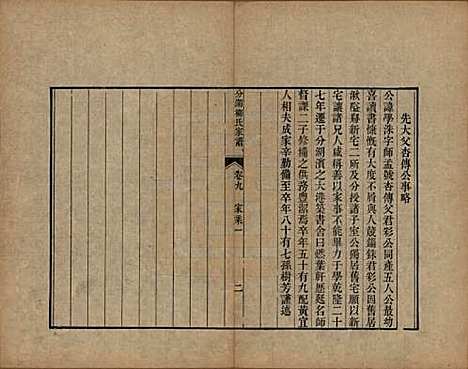 先大父杏傳公事略
公諱學洙字師孟號杏傳父君彩公同產五人公最幼
喜讀書慷慨有大度不屑與人競錙銖君彩公因舊居
湫隘釋新宅二所及分授諸子室公獨居舊宅願以新
宅讓諸兄人咸稱善以家事不能畢力于學乾隆二十
七年遷于分湖濱之大港築書舍曰媲葉軒歷延名師
督課二子修脯之供務豐潔焉卒年五十有九配黃宜
人相夫成家辛勤備至卒年八十有七孫樹芳謹述
分湖柳氏家譜
卷九 家乘一
二